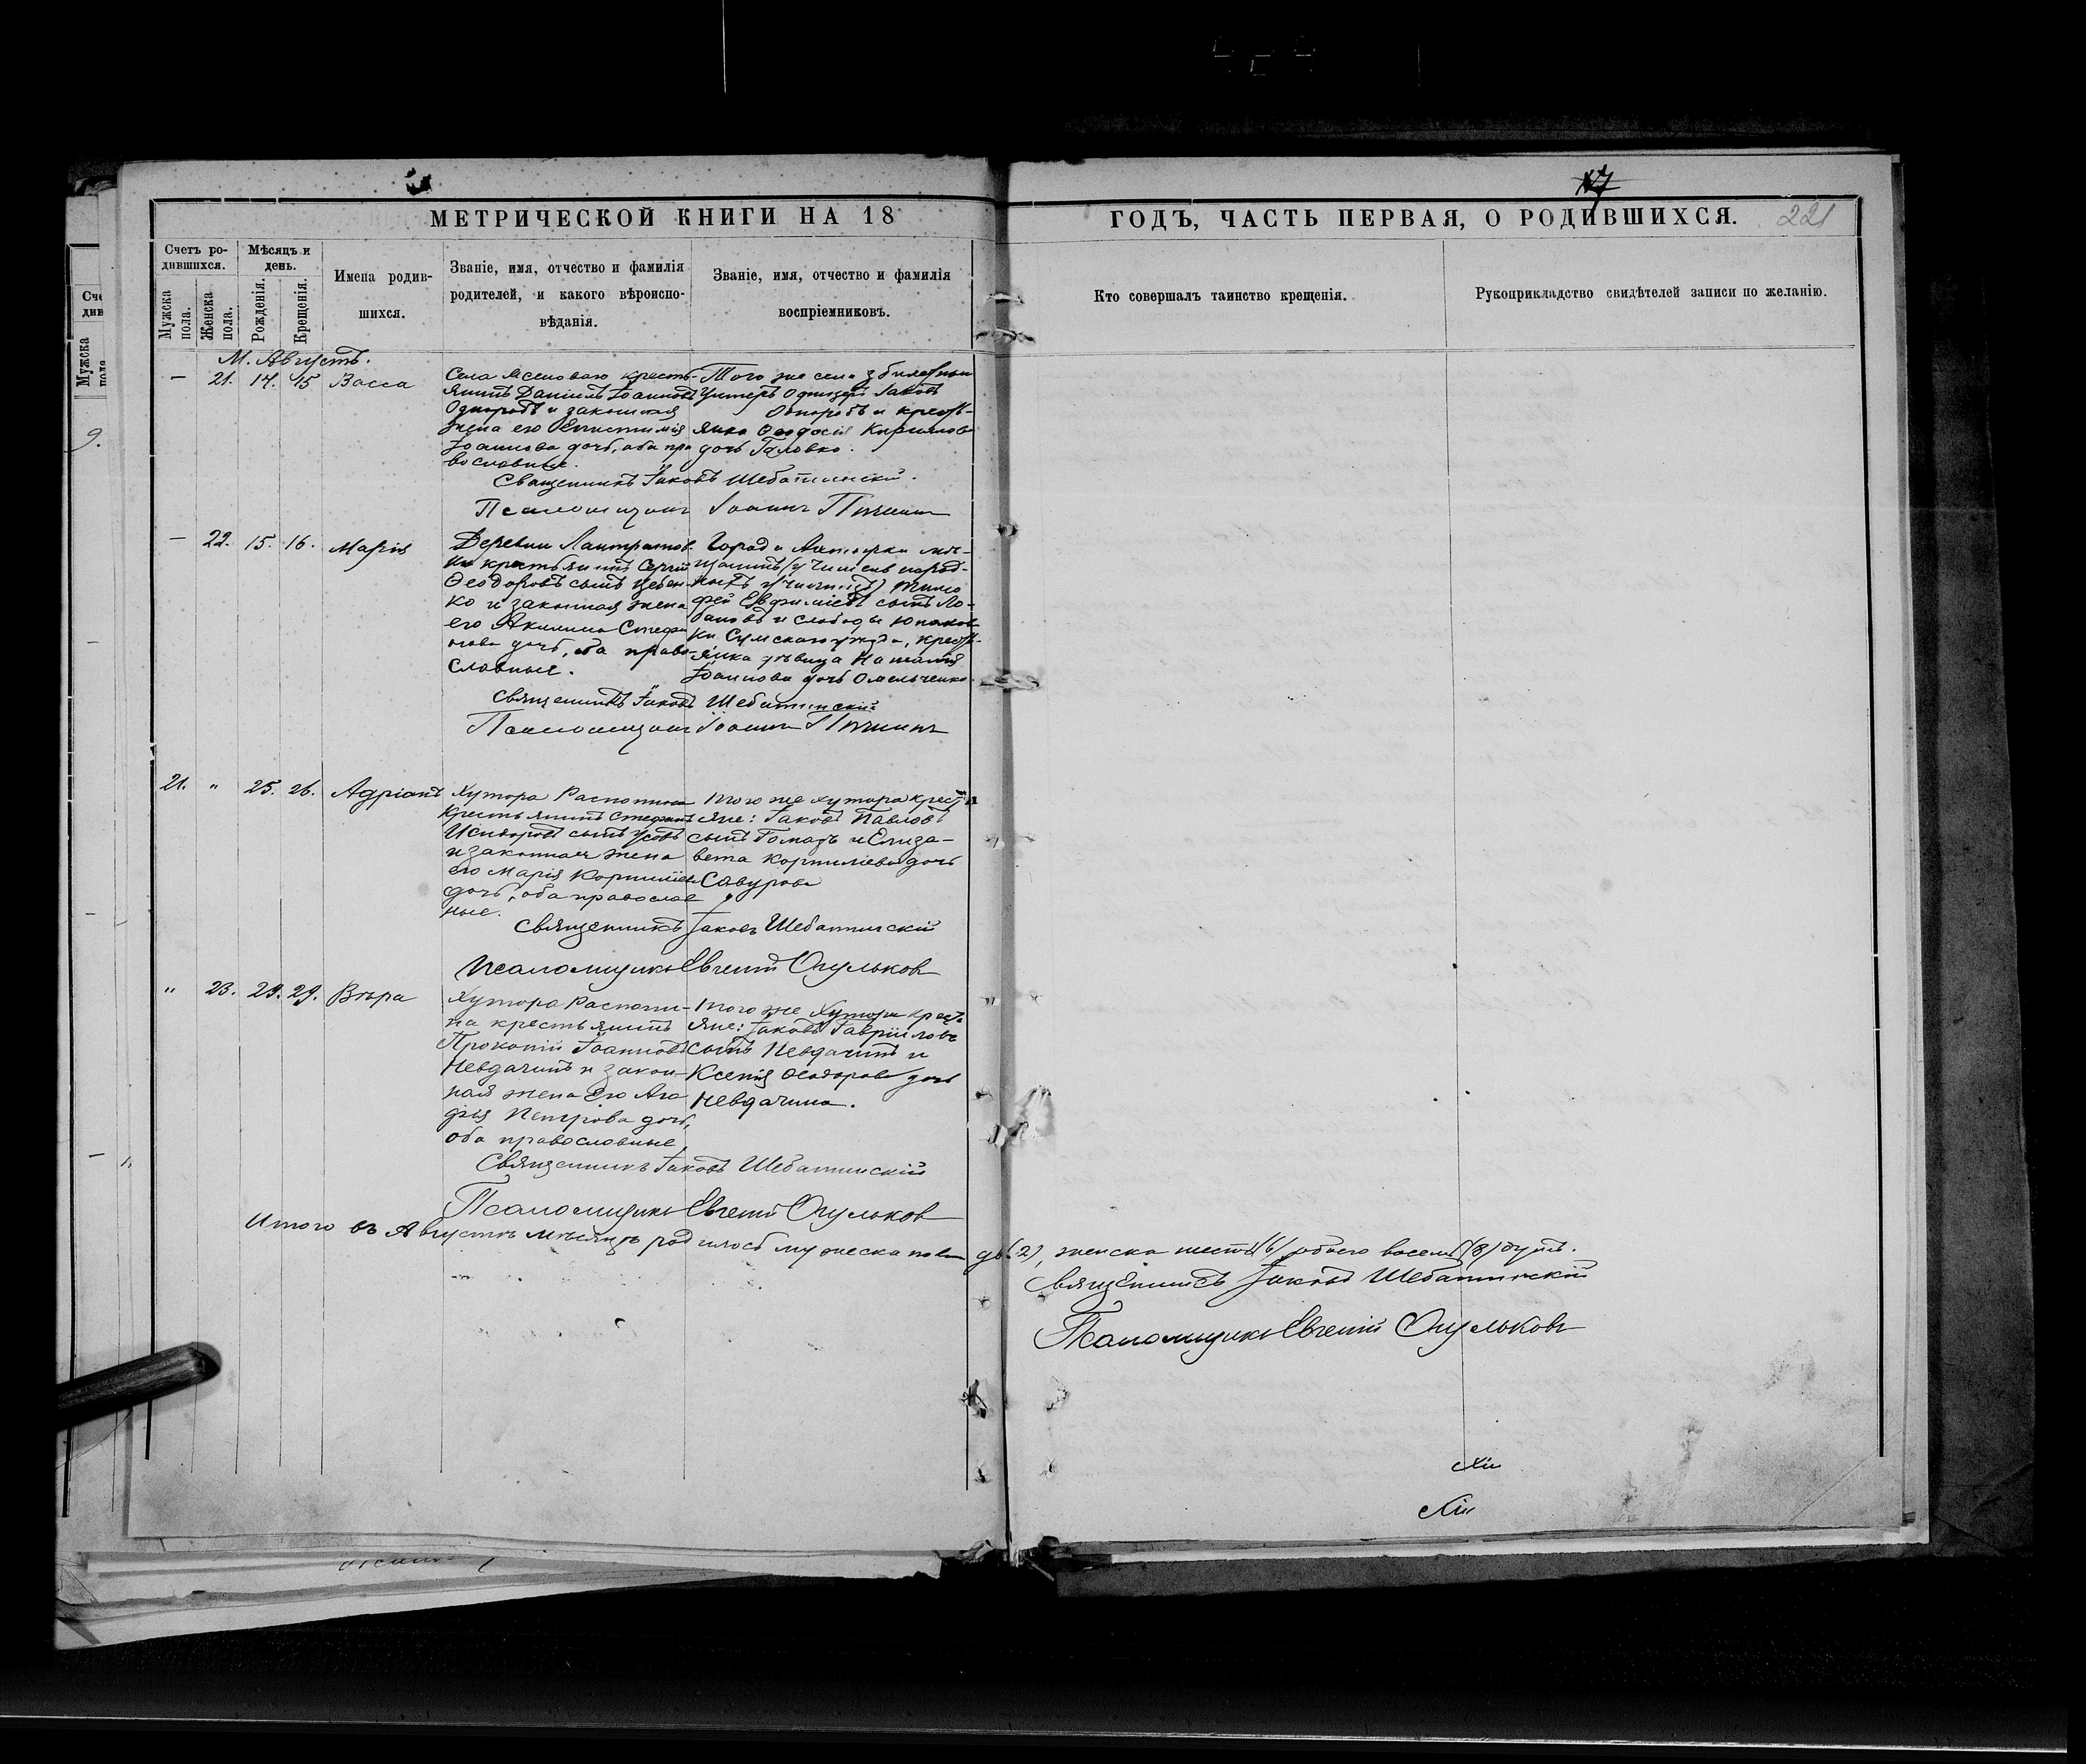 17
МЕТРИЧЕСКОЙ КНИГИ НА 18
ГОДЪ, ЧАСТЬ ПЕРВАЯ, О РОДИВШИХСЯ. 221
Счетъ ро-
дившихся.
Мужска пола.
Женска пола.
Мѣсяцъ и
день.
Рожденія.
Крещенія.
Имена родив-
шихся.
Званіе, имя, отчество и фамилія
родителей, и какого вѣроиспо-
вѣданія.
Званіе, имя, отчество и фамилія
воспріемниковъ.
Кто совершалъ таинство крещенія.
Рукоприкладство свидѣтелей записи по желанію.
М. Августъ.
— 21. 14. 15 Васса
Села Ясеноваго кресть-
янинъ Даніилъ Іоанновъ
и законная
жена его Епистимія
Іоаннова дочь, оба пра
вославные.
Того же села
Унтеръ Офицеръ Іаковъ
и кресть-
янка Ѳеодосія Кирилова
дочь Головко.
Священникъ Іаковъ Шебатинскій.
Псаломщикъ Іоаннъ
— 22. 15. 16. Марія
Деревни
крестьянинъ Сергій
Ѳеодоровъ сынъ Цебен-
ко и законная жена
его Акилина Стефа
нова дочь, оба право-
славные.
Города Ахтырки мѣ-
щанинъ (учитель народ-
ныхъ училищъ) Тимо
фей Евфиміевъ сынъ Ло-
бановъ и слободы Юнаков
ки Сумскаго уѣзда, кресть-
янка дѣвица Наталія
Іоаннова дочь Омельченко.
Священникъ Іаковъ Шебатинскій
Псаломщикъ Іоаннъ
21. " 25. 26. Адріанъ
Хутора
крестьянинъ Стефанъ
Исидоровъ сынъ Усовъ
и законная жена
его Марія Корниліева
дочь, оба православ
ные.
Того же хутора крестья
яне: Іаковъ Павловъ
сынъ и Елиза-
вета Корниліева дочь
Савурова
Священникъ Іаковъ Шебатинскій
Псаломщикъ Евгеній Огульков
" 23. 29. 29. Вѣра
Хутора
на крестьянинъ
Прокопій Іоанновъ
Невдачинъ и закон-
ная жена его Ага
фья Петрова дочь,
оба православные
Того же хутора крест
яне: Іаковъ Гавріиловъ
сынъ Невдачинъ и
Ксенія Ѳеодорова дочь
Невдачина.
Священникъ Іаковъ Шебатинскій
Псаломщикъ Евгеній Огульков
Итого въ Августѣ мѣсяцѣ родилось мужеска пола два (2), женска шесть (6), обоего восемь (8) душъ.
Священникъ Іаковъ Шебатинскій
Псаломщикъ Евгеній Огульковъ